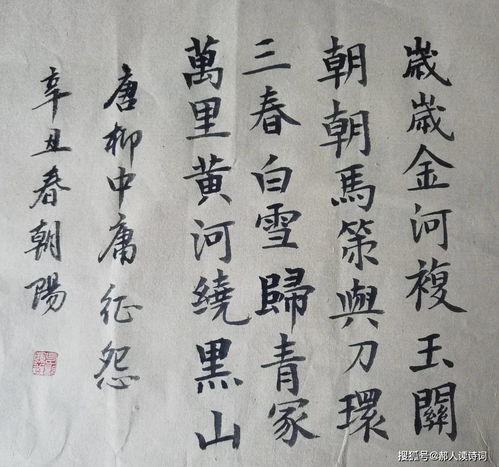 歲歲金河複玉關
朝朝馬策與刀環
三春白雪歸青冢
萬里黃河繞黑山
唐柳中庸征怨
辛丑春朝陽
搜狐号@郝人读诗词